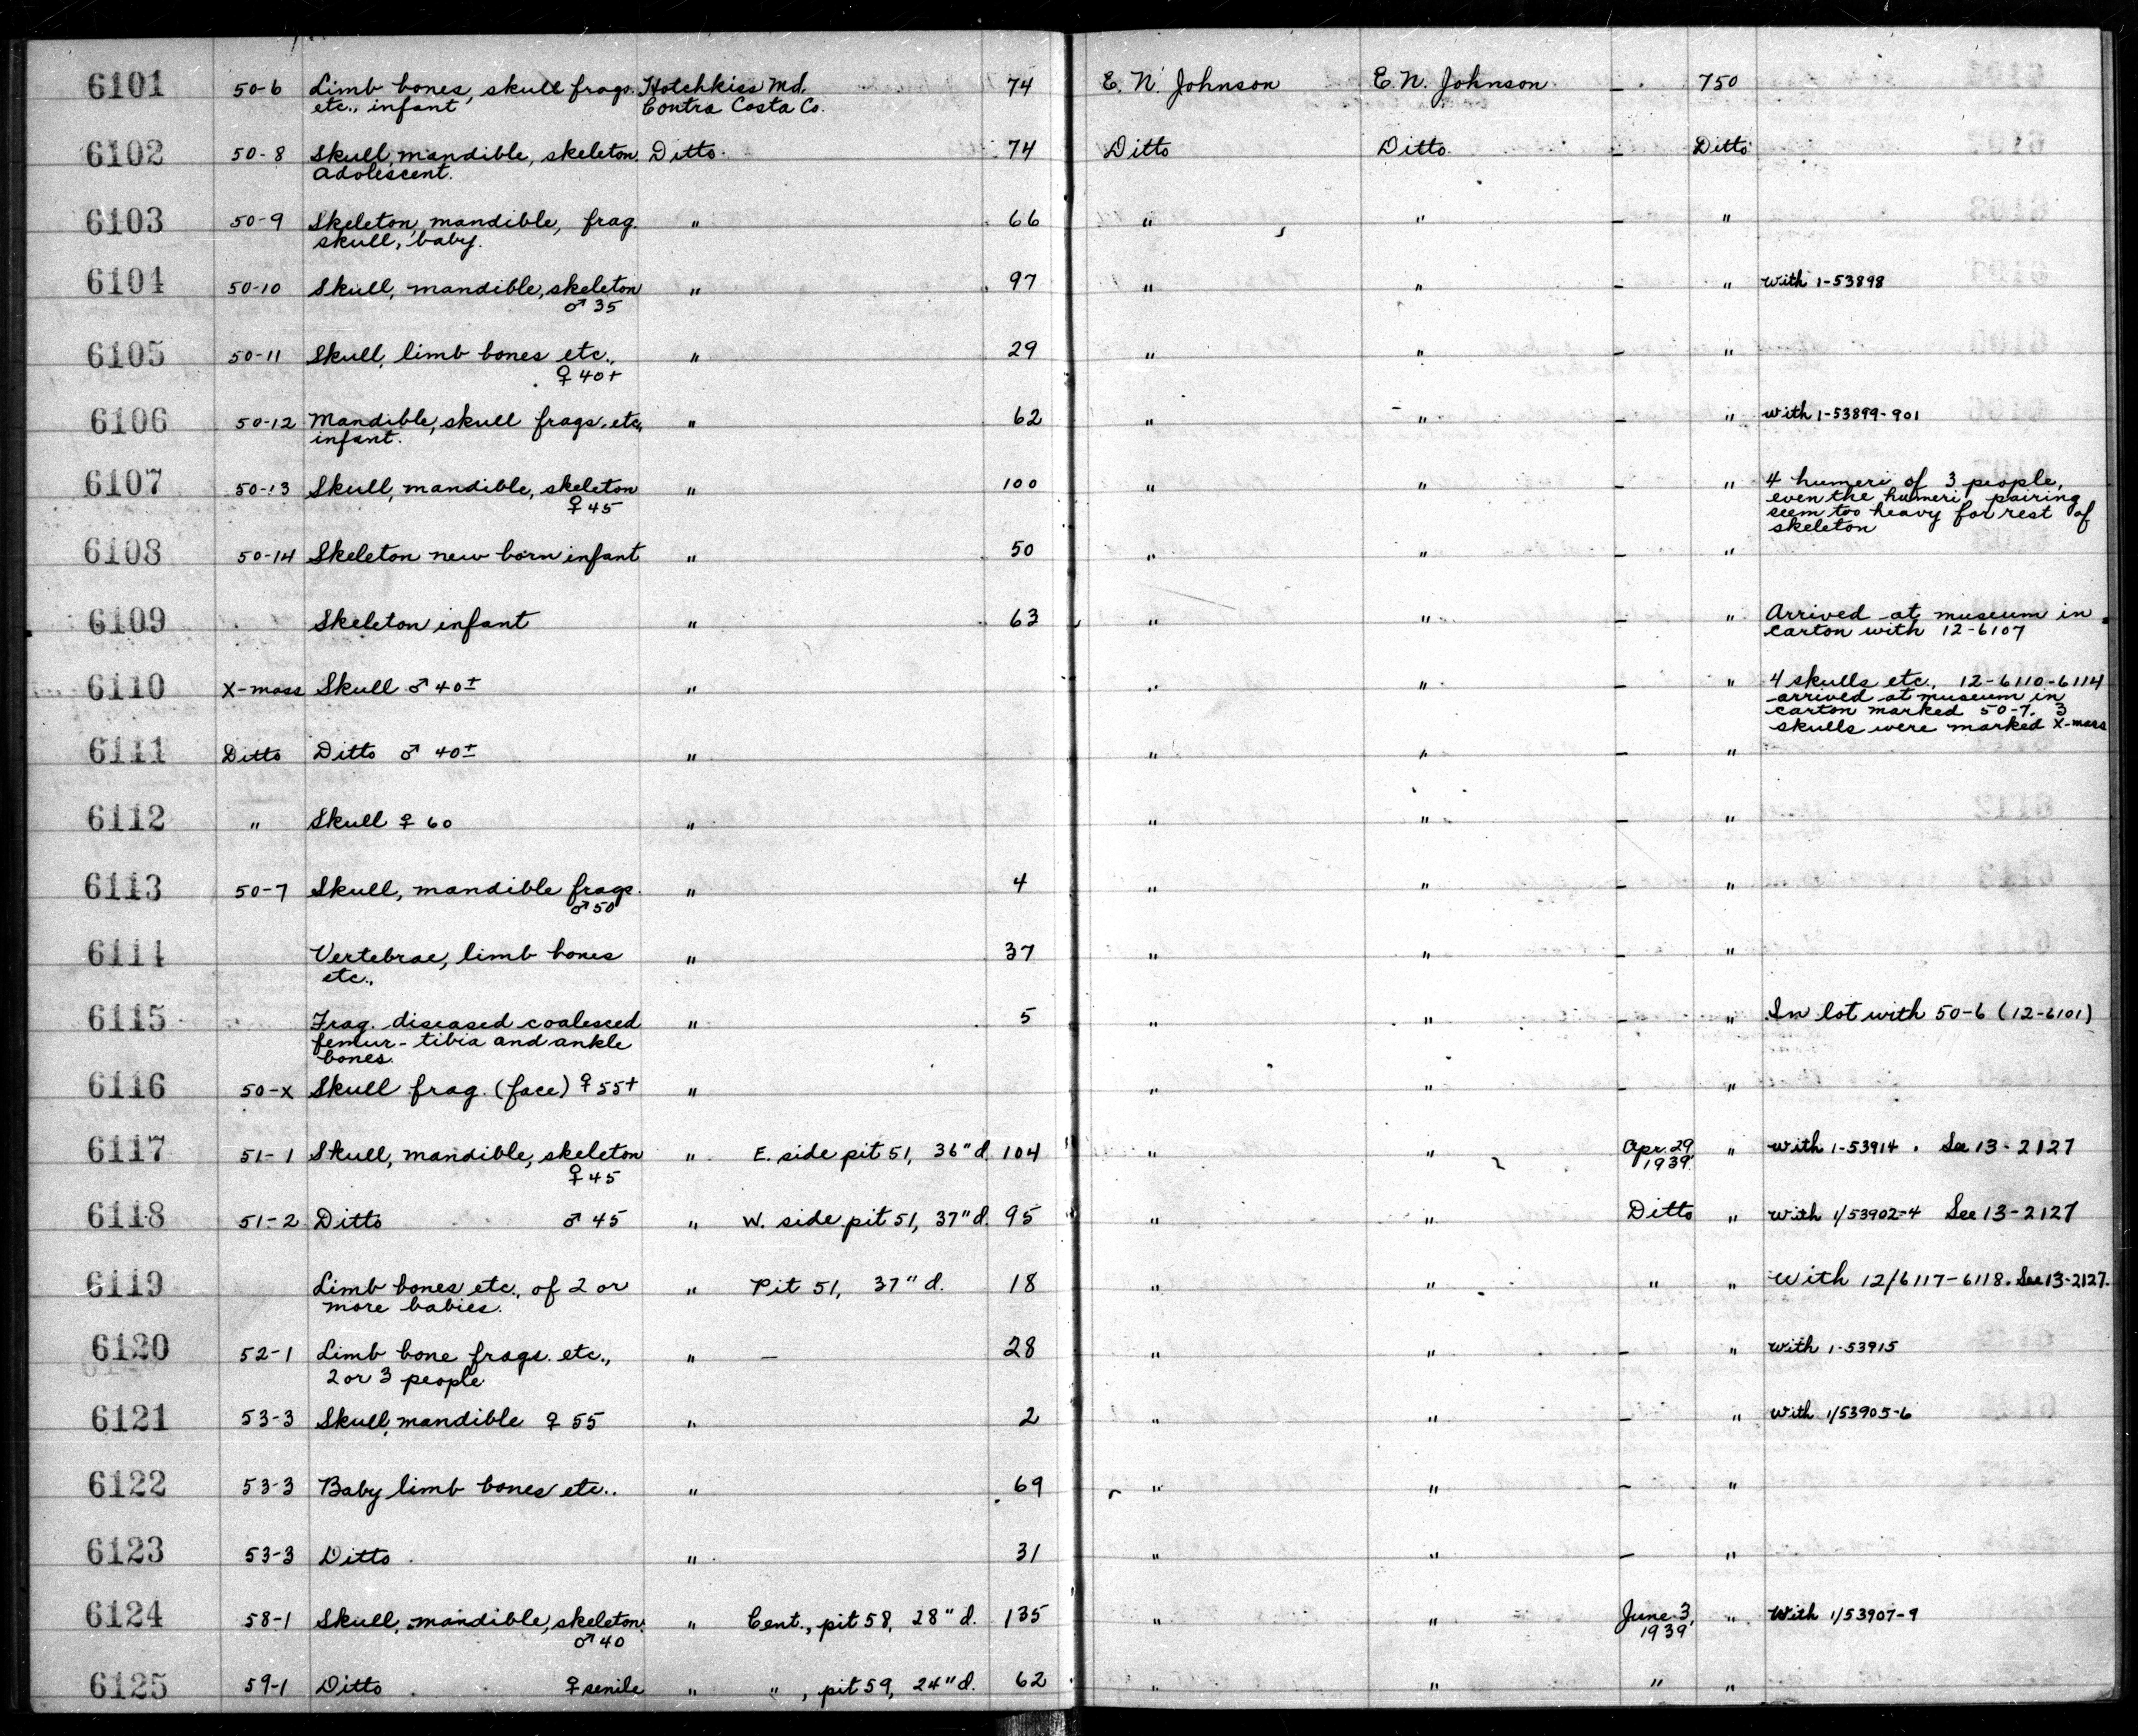 6101 50-6 Limb bones, skull frags. Hotchkiss Md. 74 E. N. Johnson E. N. Johnson - 750
etc., infant Contra Costa Co.
6102 50-8 Skull, mandible, skeleton. Ditto 74 Ditto Ditto - Ditto
adolescent.
6103 50-9 Skeleton, mandible, frag. " 66 " " - "
skull, baby.
6104 50-10 Skull, mandible, skeleton " 97 " " - " with 1-53898
♂ 35
6105 50-11 Skull, limb bones etc., " 29 " " - "
♀ 40+
6106 50-12 Mandible, skull frags. etc., " 62 " " - " with 1-53899-901
infant.
6107 50-13 Skull, mandible, skeleton " 100 " " - " 4 humeri of 3 people,
♀ 45 even the humeri pairing
seem too heavy for rest of
skeleton
6108 50-14 Skeleton new born infant " 50 " " - "
6109 Skeleton infant " 63 " " - " Arrived at museum in
carton with 12-6107
6110 X-mass Skull ♂ 40± " " " - " 4 skulls etc., 12-6110-6114
arrived at museum in
carton marked 50-7. 3
skulls were marked X-mass
6111 Ditto Ditto ♂ 40± " " " - "
6112 " Skull ♀ 60 " " " - "
6113 50-7 Skull, mandible frags. " 4 " " - "
♂ 50
6114 Vertebrae, limb bones " 37 " " - "
etc.,
6115 Frag. diseased coalesced " 5 " " - " In lot with 50-6 (12-6101)
femur - tibia and ankle
bones.
6116 50-X Skull frag. (face) ♀ 55+ " " " - "
6117 51-1 Skull, mandible, skeleton " E. side pit 51, 36" d. 104 " " Apr. 29 " with 1-53914. See 13-2127
♀ 45 1939.
6118 51-2 Ditto ♂ 45 " W. side pit 51, 37" d. 95 " " Ditto " with 1/53902-4 See 13-2127
6119 Limb bones etc., of 2 or " Pit 51, 37" d. 18 " " " " With 12/6117-6118. See 13-2127.
more babies.
6120 52-1 Limb bone frags. etc., " - 28 " " - " with 1-53915
2 or 3 people
6121 53-3 Skull, mandible ♀ 55 " 2 " " - " with 1/53905-6
6122 53-3 Baby limb bones etc.. " 69 " " - "
6123 53-3 Ditto " 31 " " - "
6124 58-1 Skull, mandible, skeleton. " Cent., pit 58, 28" d. 135 " " June 3, " With 1/53907-9
♂ 40 1939
6125 59-1 Ditto ♀ senile " " , pit 59, 24" d. 62 " " " "